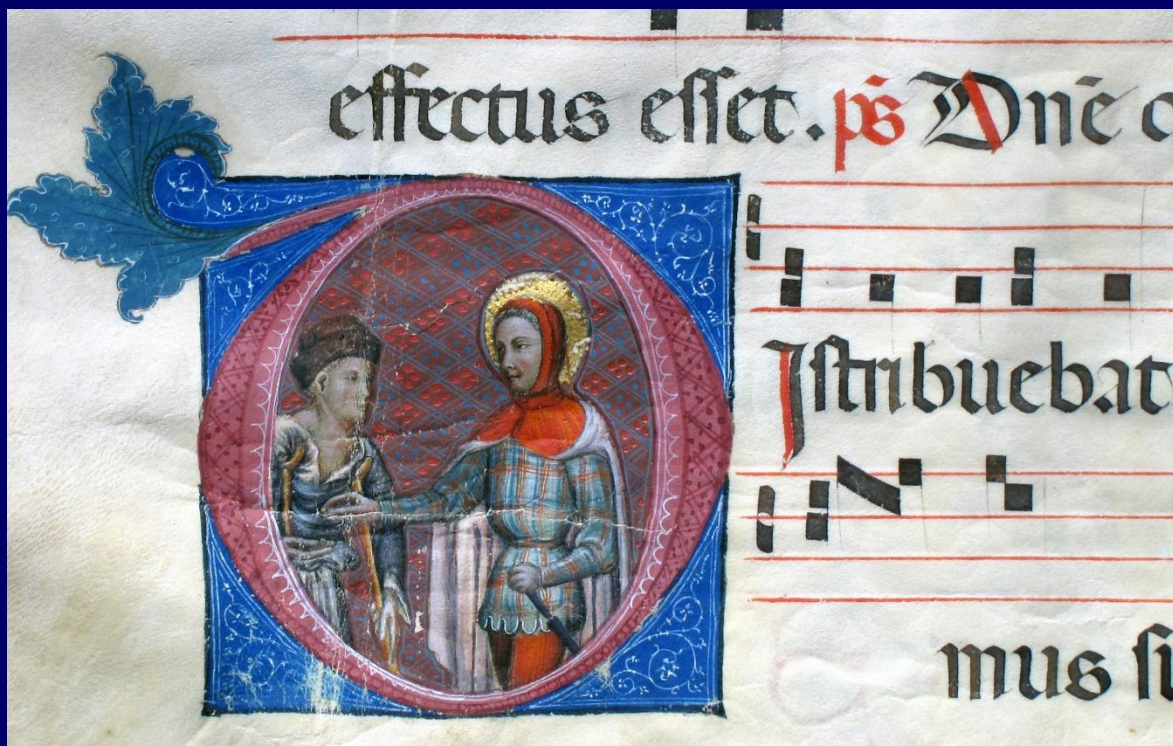 effectus esset. ps̄ Dn̄e
D Istribuebat
mus